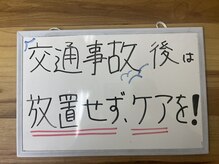 交通事故後は
放置せず、ケアを!